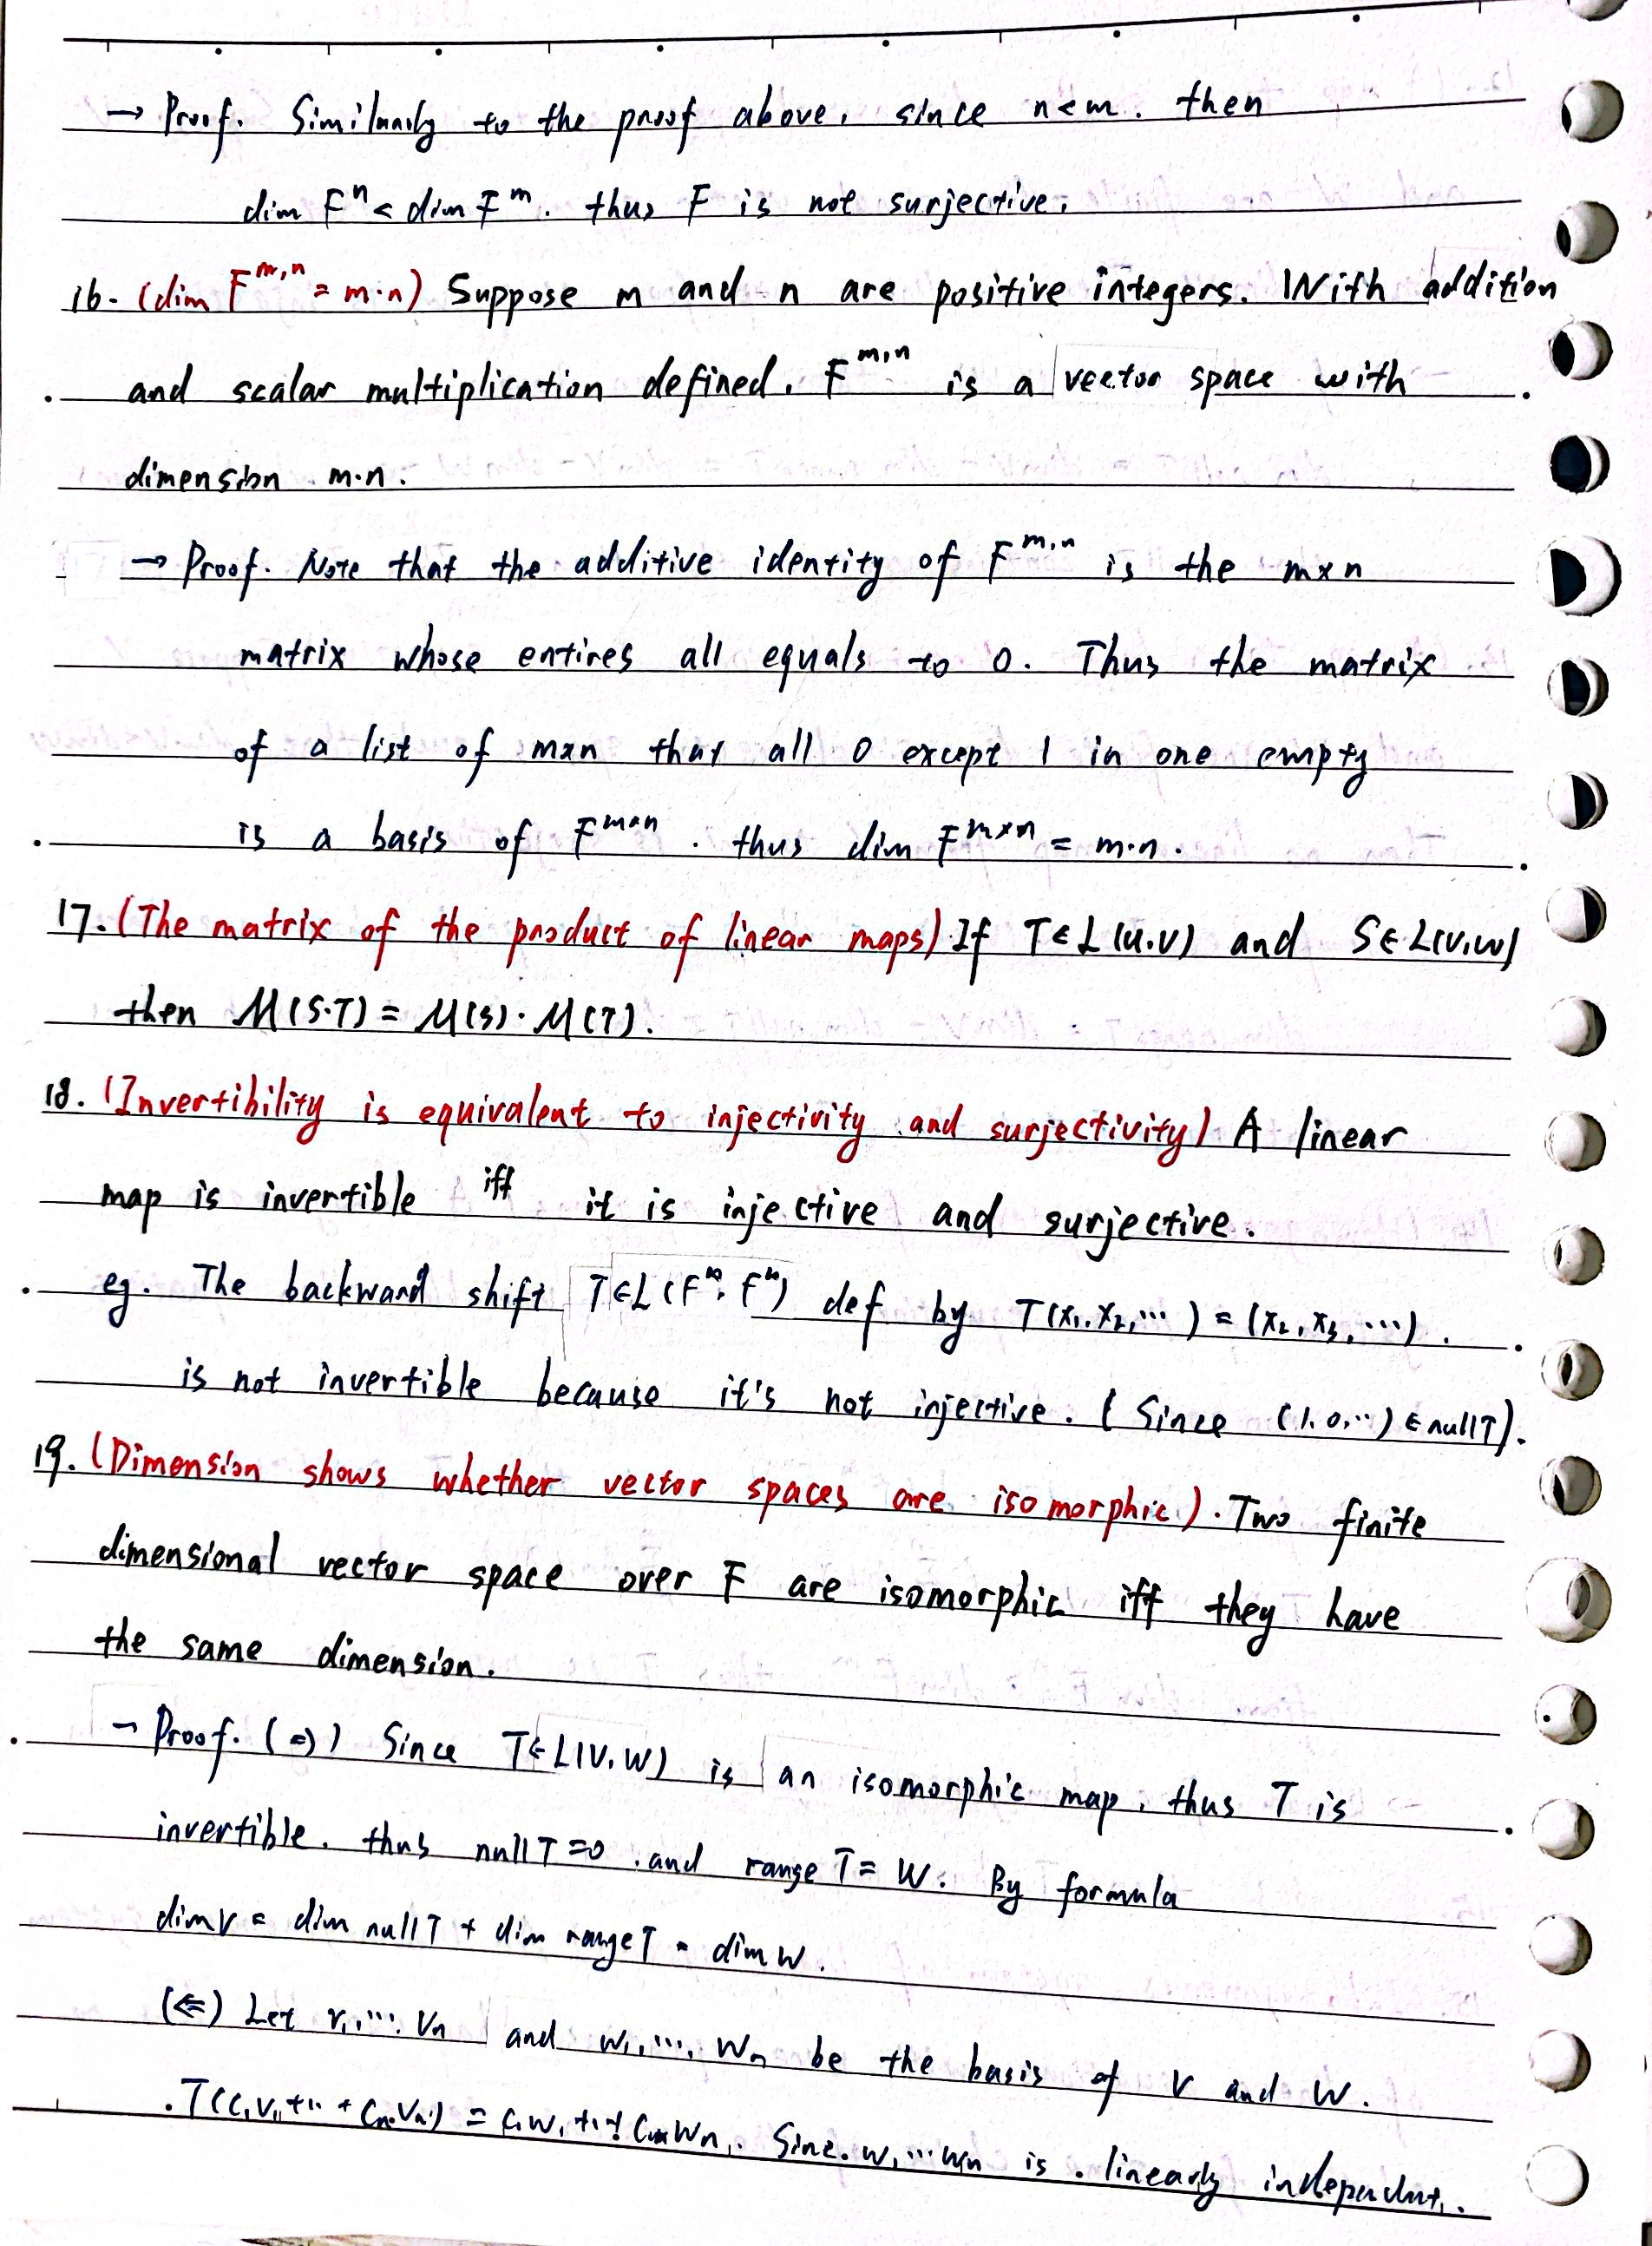 → Proof. Similarly to the proof above, since n<m. then
dim Fⁿ < dim Fᵐ. thus F is not surjective.
16. (dim F^{m,n} = m·n) Suppose m and n are positive integers. With addition
and scalar multiplication defined. F^{m,n} is a vector space with
dimension m·n.
→ Proof. Note that the additive identity of F^{m,n} is the m×n
matrix whose entires all equals to 0. Thus the matrix
of a list of m×n that all 0 except 1 in one empty
is a basis of F^{m×n}. thus dim F^{m×n} = m·n.
17. (The matrix of the product of linear maps) If T∈L(U,V) and S∈L(V,W)
then M(S·T) = M(S)·M(T).
18. (Invertibility is equivalent to injectivity and surjectivity) A linear
map is invertible iff it is injective and surjective.
eg. The backward shift T∈L(F^∞, F^∞) def by T(x₁,x₂,…) = (x₂,x₃,…).
is not invertible because it's not injective. (Since (1,0,…) ∈ null T).
19. (Dimension shows whether vector spaces are isomorphic). Two finite
dimensional vector space over F are isomorphic iff they have
the same dimension.
→ Proof. (⇒) Since T∈L(V,W) is an isomorphic map, thus T is
invertible. thus null T = 0 and range T = W. By formula
dim V = dim null T + dim range T = dim W.
(⇐) Let v₁,…,vₙ and w₁,…,wₙ be the basis of V and W.
T(c₁v₁+…+cₙvₙ) = c₁w₁+…+cₙwₙ. Sine. w₁,…wₙ is linearly independent.